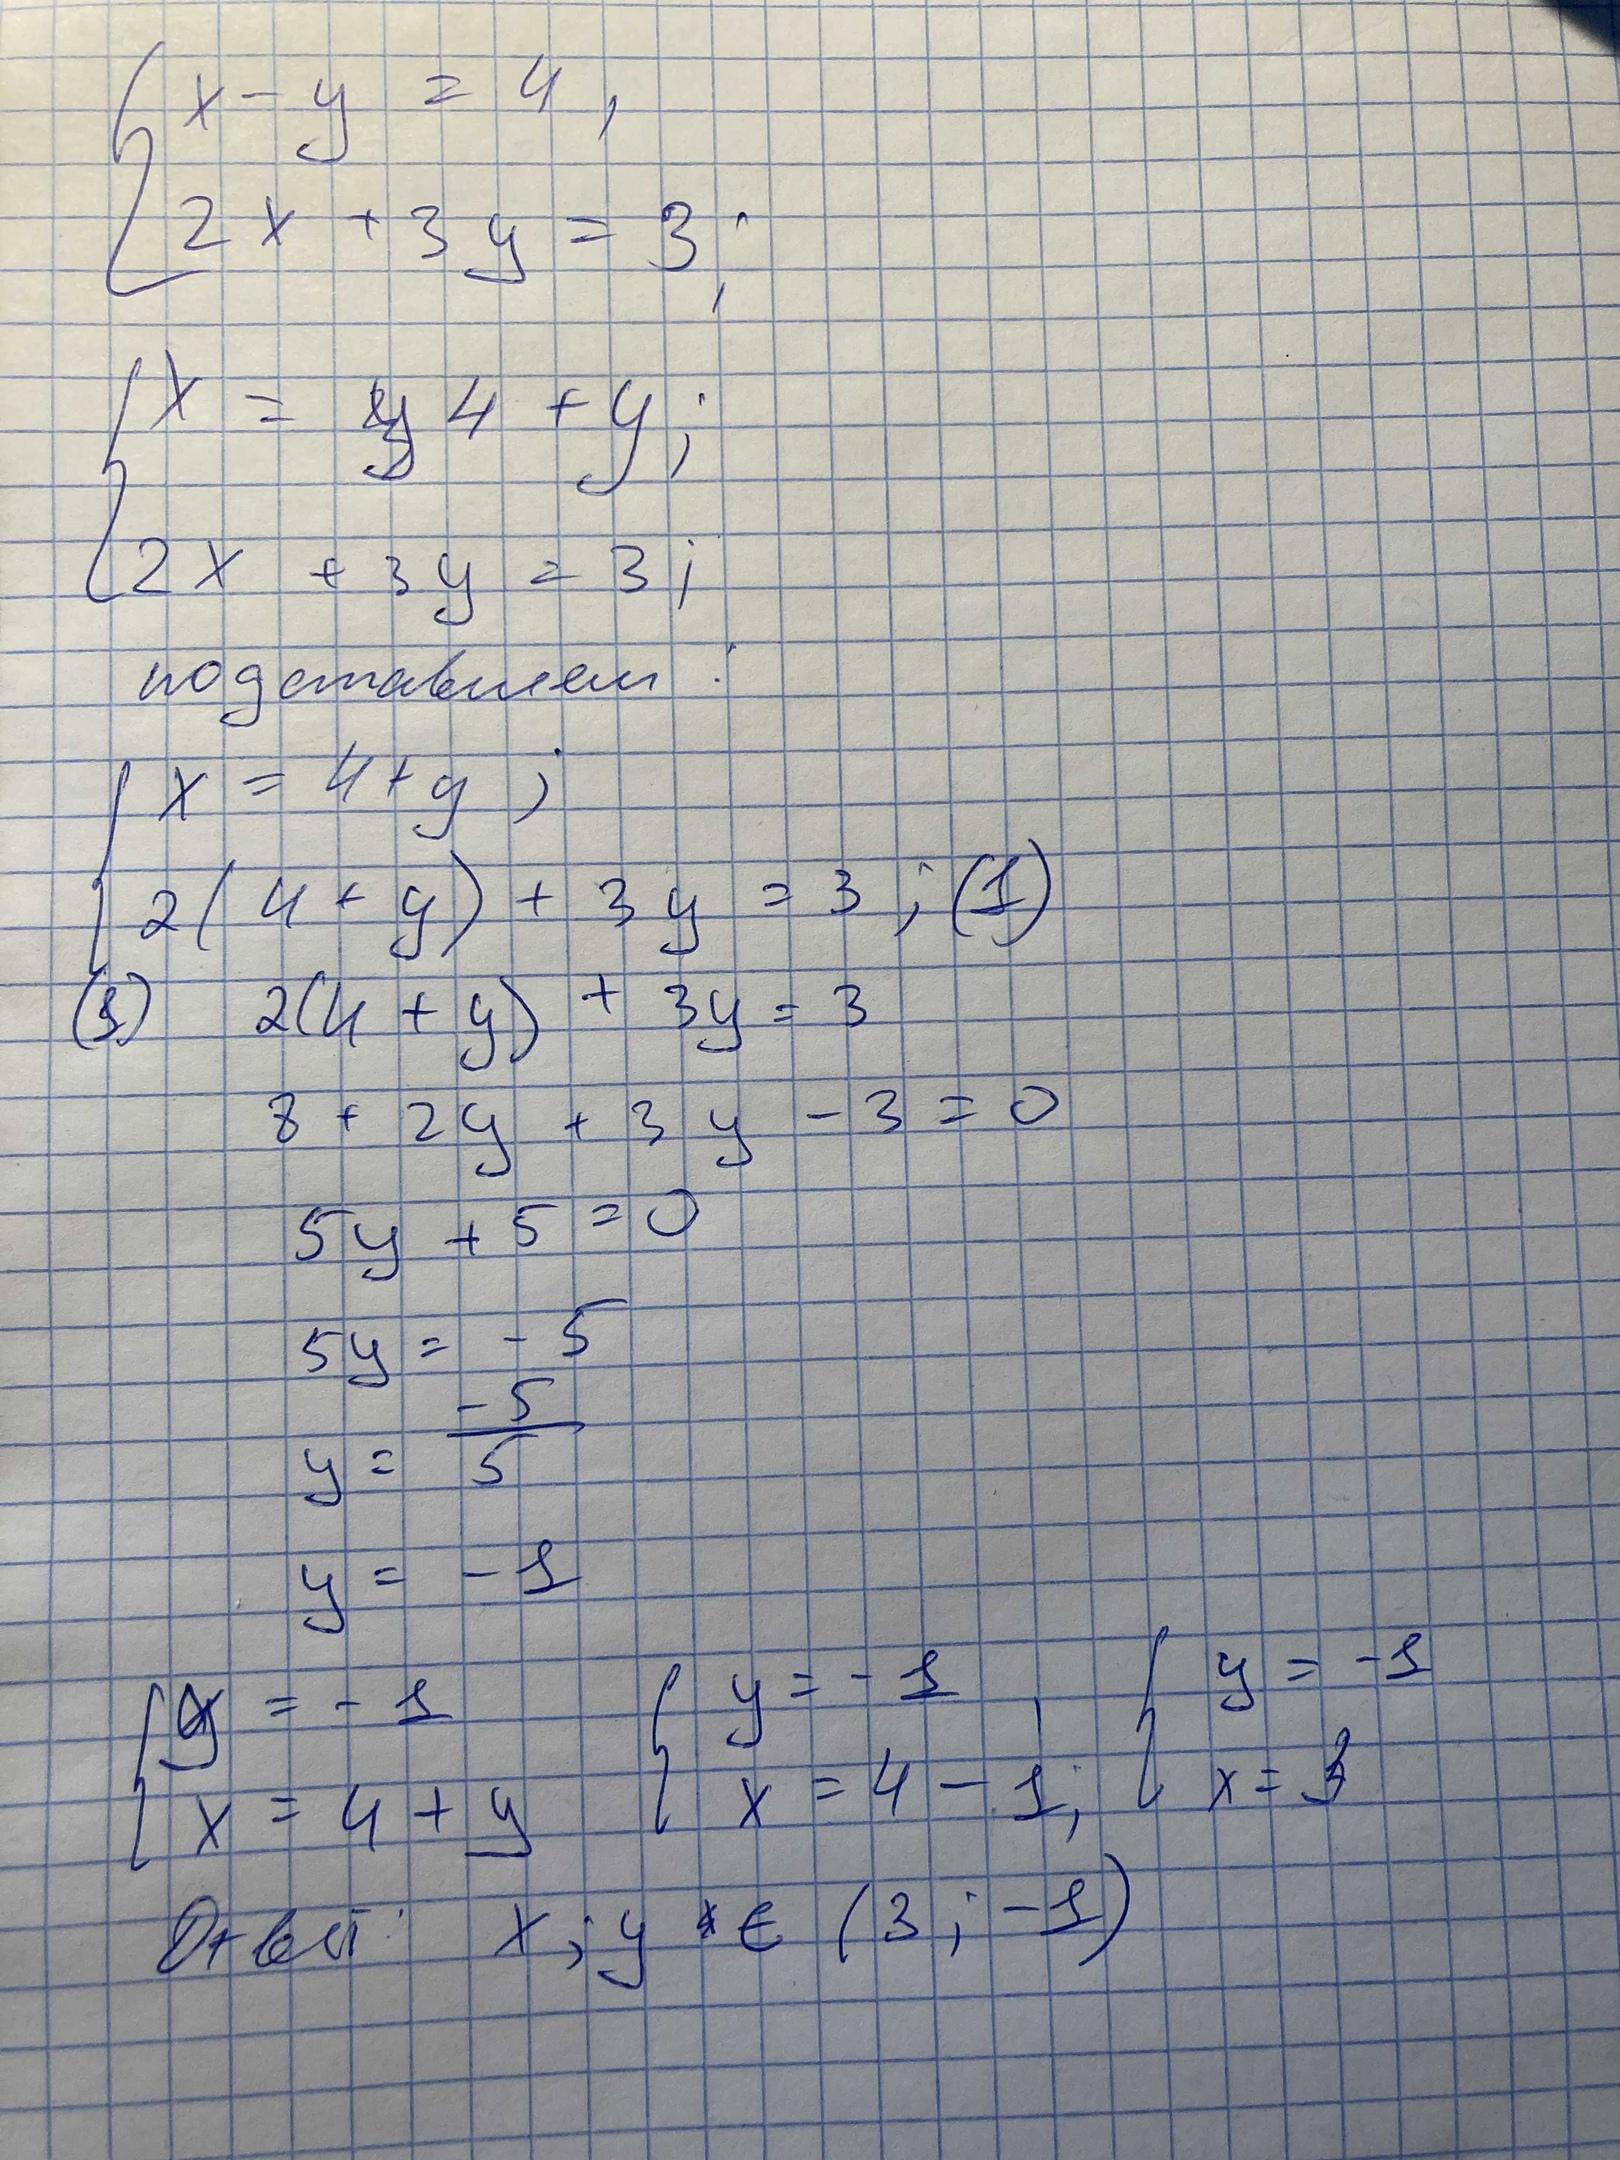 { x - y = 4,
2x + 3y = 3;
{ x = 4 + y;
2x + 3y = 3;
подставляем:
{ x = 4 + y;
2(4 + y) + 3y = 3; (1)
(1) 2(4 + y) + 3y = 3
8 + 2y + 3y - 3 = 0
5y + 5 = 0
5y = -5
y = -5/5
y = -1
{ y = -1 { y = -1 { y = -1
x = 4 + y x = 4 - 1; x = 3
Ответ: x; y ∈ (3; -1)